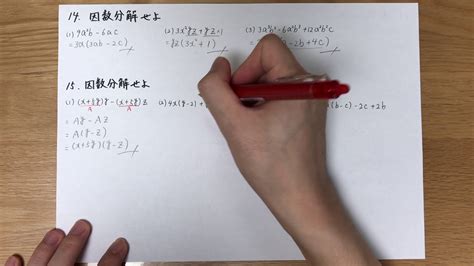 14. 因数分解せよ
(1) 9a²b - 6ac
= 3a(3ab - 2c)
(2) 3x²yz + yz
= yz(3x² + 1)
(3) - 6a²b³ + 12a²b²c
- 2b + 4c)
15. 因数分解せよ
(1) (x+5y)y - (x+5y)z
A A
= Ay - Az
= A(y - z)
= (x+5y)(y - z)
(2) 4x(y-2) +
(b-c) - 2c + 2b